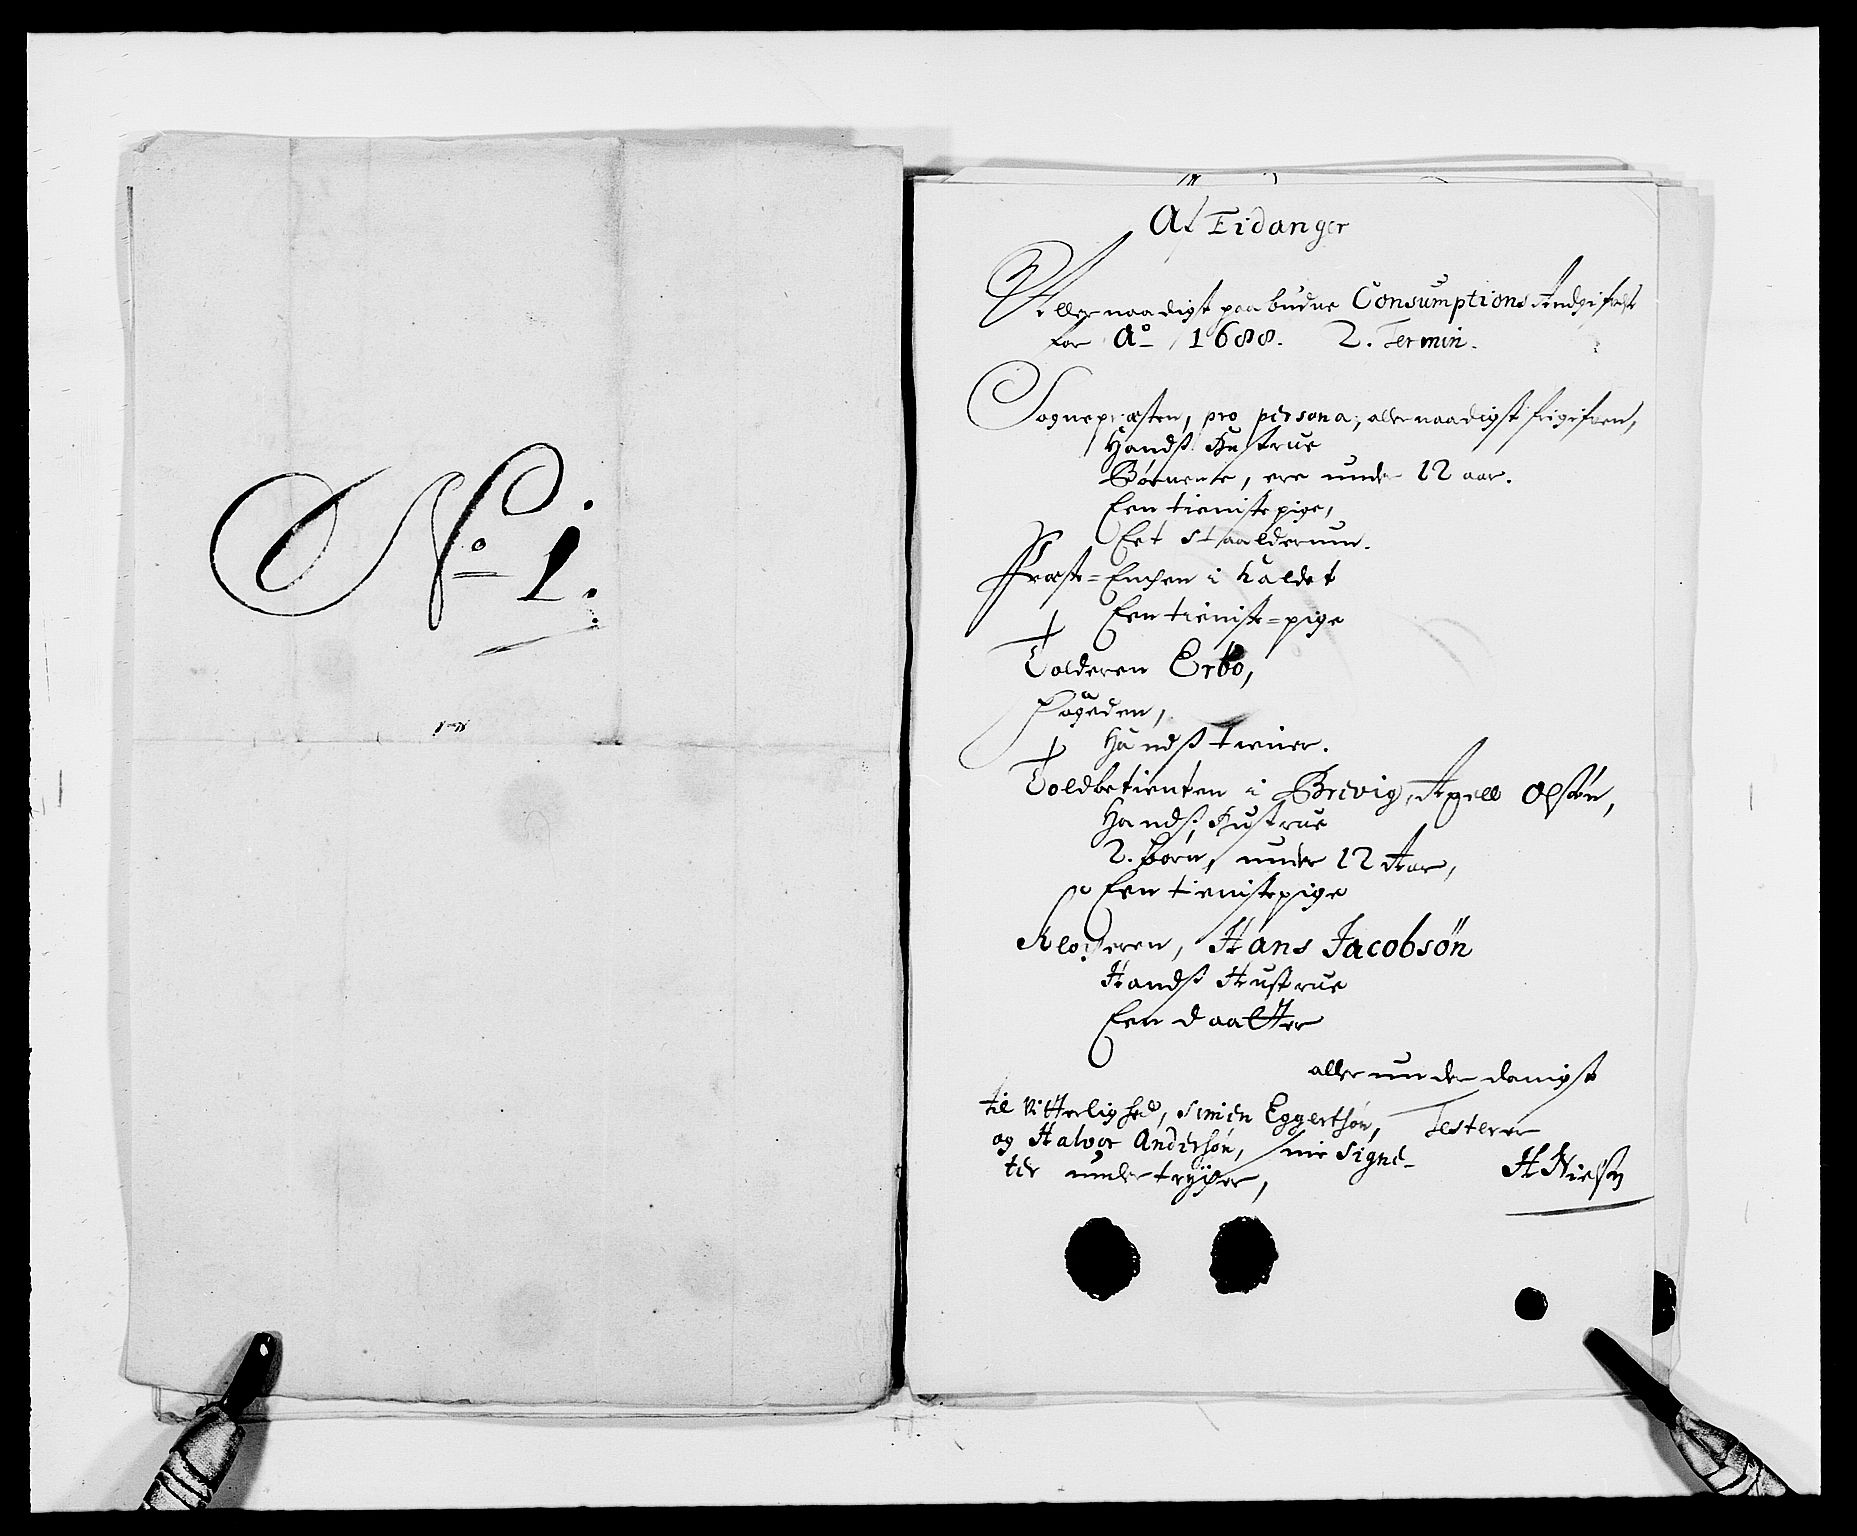 No 1.
Af Eidanger
Allernaadigst paabudne Consumptions Andgifvelse
for Ao 1688. 2. Termin.
Sognepræsten, pro persona, allernaadigst frigifven,
Handß Hustrue
Børnene, ere under 12 aar.
Een tieniste pige,
Eet Staalderum.
Præste-Enchen i kaldet
Een tieniste-pige
Tolderen Erbo,
Fogeden,
Handß tiener.
Toldbetienten i Brevig, Axell Olsøn,
Handß Hustrue
2. børn, under 12 Aar,
Een tienistepige
Klocheren, Hans Jacobsøn
Handß Hustrue
Een daatter
allerunderdanigst
til Vitterlighed, Simen Eggertsøn, Testerer
og Halvor Andersøn, Signe-
ter undertrÿcher,
HNielsøn